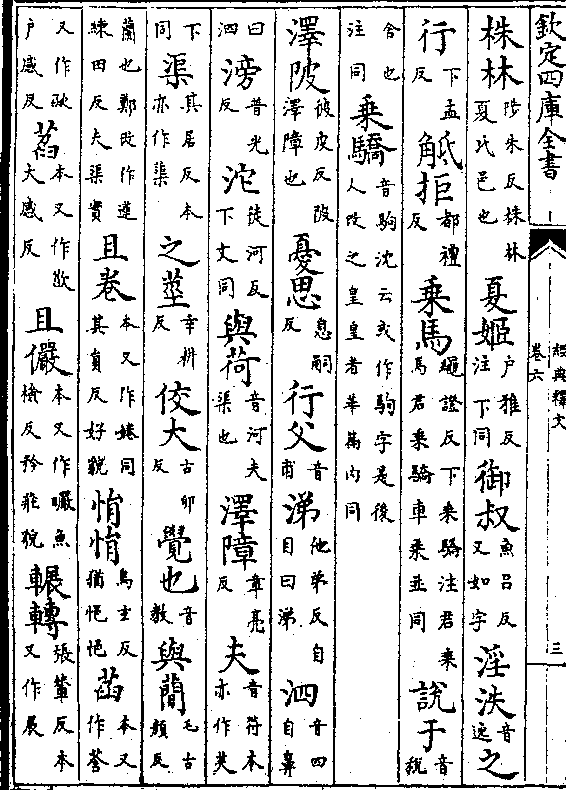 欽定四庫全書
經典釋文
卷六
三
株林陟朱反株林夏氏邑也夏姬戶雅反注下同御叔魚吕反又如字淫泆音逸之
行下孟反觝拒都禮反乘馬繩證反下乘驕注君乘馬君乘騎車乘並同說于音稅
舍也注同乘驕音駒沈云或作駒字是後人改之皇皇者華篇内同
澤陂彼皮反陂澤障也憂思息嗣反行父音甫涕他弟反自目曰涕泗音四自鼻
曰泗滂普光反沱徒河反下文同與荷音河夫渠也澤障章亮反夫音符本亦作芙
下同渠其居反本亦作蕖之莖幸耕反佼大古卯反覺也音教與蕳毛古顏反
蘭也鄭改作蓮練田反夫渠實且卷本又作婘同其員反好貌悁悁烏玄反猶悒悒菡本又作莟
又作欿戶感反萏本又作歁大感反且儼本又作曮魚檢反矜莊貌輾轉張輦反本又作展